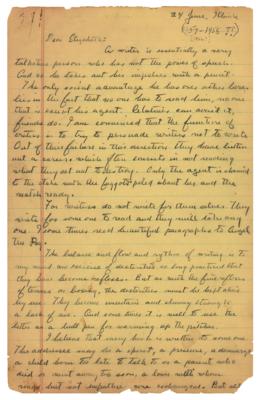 24 June,
Dear Elizabeth:
A writer is essentially a very
talkative person who has not the power of speech.
And so he takes out his impulses with a pencil.
The only social advantage he has over other bores
lies in the fact that no one has to read him, no one
that is except his agent. Relatives can avoid it,
friends do. I am convinced that the function of
critics is to try to persuade writers not to write
Out of their failure in this direction they have built
out a career which often consists in not reading
what they set out to destroy. Only the agent is chained
to the stake with the faggots piled about her and the
match ready.
For writers do not write for themselves. They
write for some one to read and they will take any
one. I some times read beautiful paragraphs to Angel
the Dog.
The balance and flow and rythm of writing is to
my mind an exercise of dexterities so long practiced that
they have become reflexes. But as with the fine reflexes
of tennis or boxing, the dexterities must be kept alive
by use. They become uncertain and clumsy
a lack of use. And some times it is well to use the
letter as a bull pen for warming up the pitcher.
I believe that every book is written to some one
The addressee may be a spirit, a presence, a
a child born too late to talk to or a parent who
died or went away too soon, a lover with whom
but not were exchanged. But all